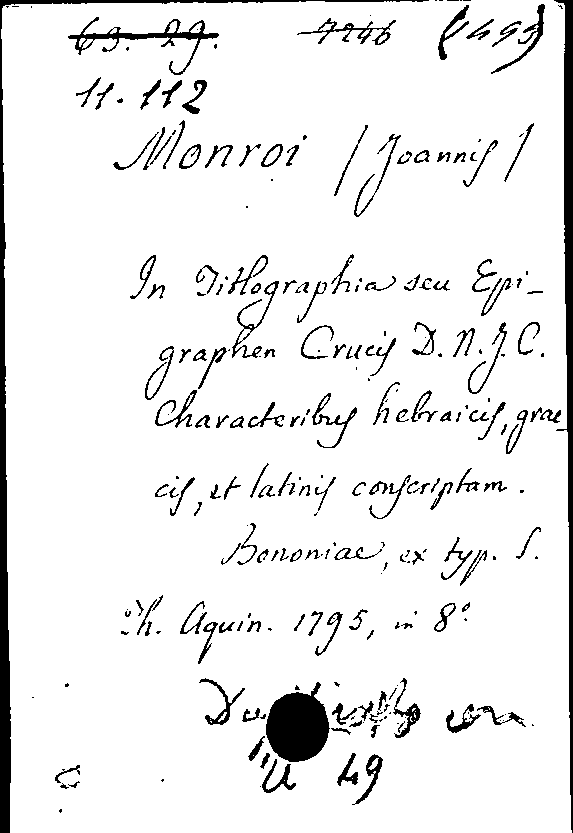 63. 29. 7246 (1495)
11. 112
Monroi (Joannis)
In Titlographia seu Epi-
graphen Crucis D. N. J. C.
Characteribus hebraicis, grae-
cis, et latinis conscriptam.
Bononiae, ex typ. S.
Th. Aquin. 1795, in 8°.
U 49